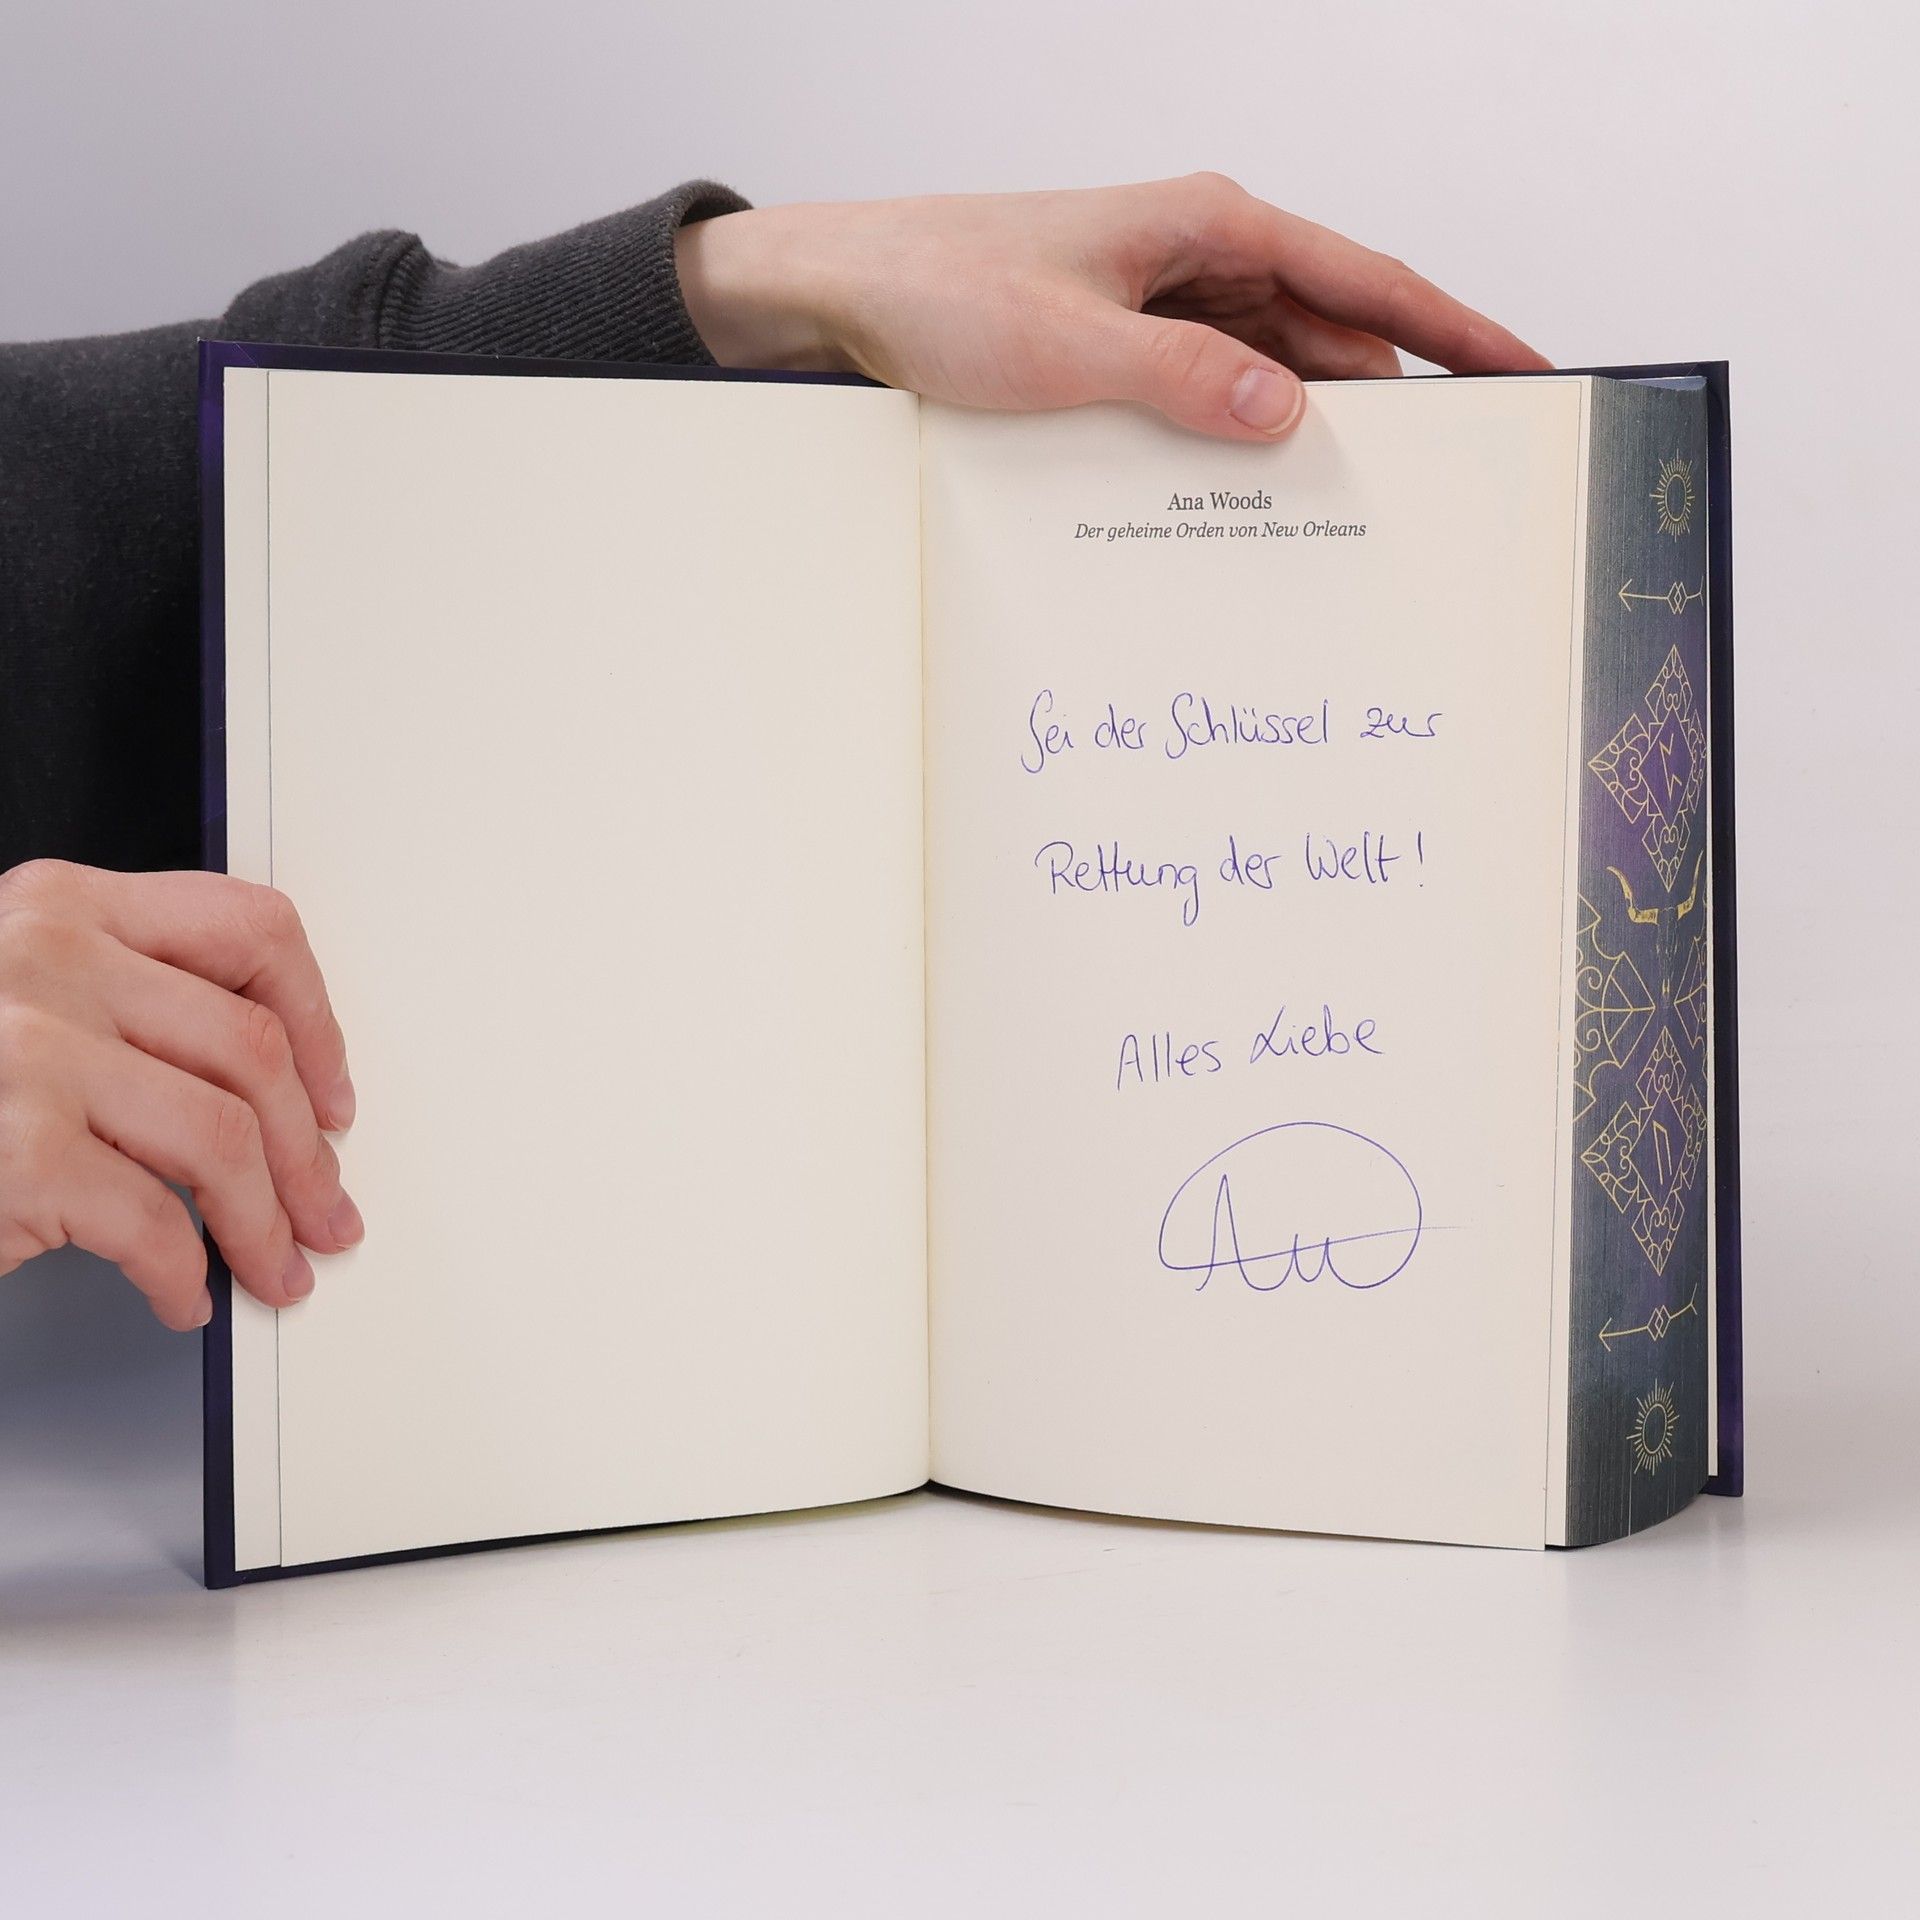 Ana Woods
Der geheime Orden von New Orleans
Sei der Schlüssel zur
Rettung der Welt!
Alles Liebe
AW